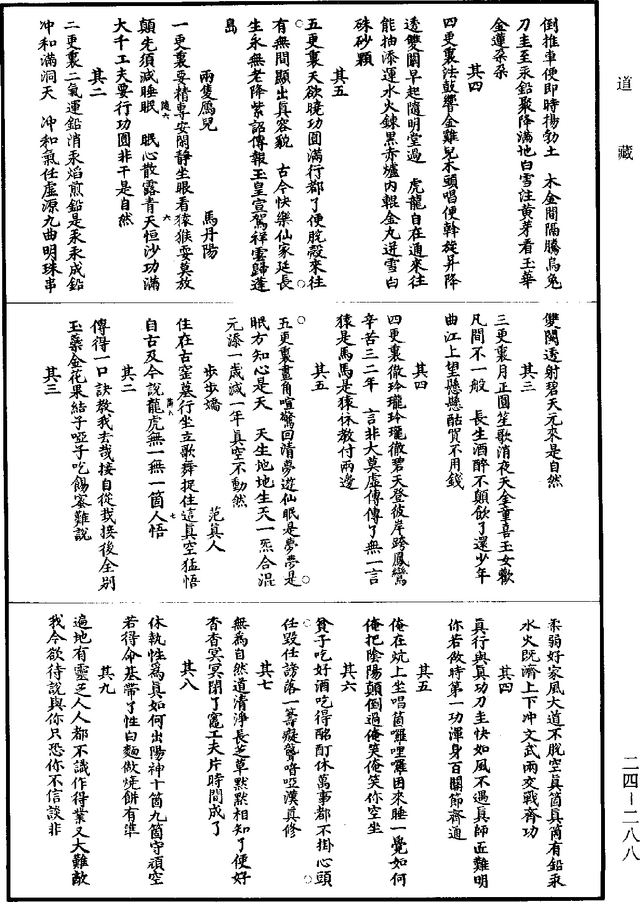 道藏
倒推車便即時揚勃土　木金間隔騰烏兔
刀圭至汞鉛聚降滿地白雪註黃芽看玉華
金蓮朵朵
其四
四更裏法鼓響金雞兒木頭唱便斡旋昇降
透雙關早起隨明堂過　虎龍自在通來往
能抽添運水火鍊黑赤爐內輥金丸迸雪白
硃砂顆
其五
五更裏天欲曉功圓滿行都了便脫殼來往
有無間顯出真容貌　古今快樂仙家延長
生永無老降紫詔傳報玉皇宣駕祥雲歸蓬
島
兩隻鴈兒　馬丹陽
一更裏要精專安閑靜坐眼看猿猴耍莫放
顛先須滅睡眠　眠心散露青天恒沙功滿
大千工夫要行功圓非干是自然
其二
二更裏二氣運鉛消汞焰煎鉛是汞汞成鉛
冲和滿洞天　冲和氣任虛源九曲明珠串
雙關透射碧天元來是自然
其三
三更裏月正圓笙歌消夜天金童喜玉女歡
凡間不一般　長生酒醉不顛飲了還少年
曲江上望懸懸酤買不用錢
其四
四更裏徹玲瓏玲瓏徹碧天登彼岸跨鳳鸞
辛苦三二年　言非大莫虛傳傳了無一言
猿是馬馬是猿休教付兩邊
其五
五更裏畫角喧驚回清夢遊仙眠是夢夢是
眠方知心是天　天生地地生天一炁合混
元添一歲減一年真空不動然
步步嬌　范真人
住在古窑墓行坐立歌舞捉住這真空猛悟
自古及今說龍虎無一無一箇人悟
其二
傳得一口訣教我去哉接自從我接後全別
玉蘂金花果結子啞子吃餳蜜難說
其三
柔弱好家風大道不脫空真箇真箇有鉛汞
水火既濟上下冲文武兩交戰齊功
其四
真行與真功刀圭快如風不遇真師匠難明
你若做時第一功渾身百關節齊通
其五
俺在炕上坐唱箇囉哩囉困來睡一覺如何
俺把陰陽顛倒過俺笑俺笑你空坐
其六
貧子吃好酒吃得酩酊休萬事都不掛心頭
任毀任謗落一籌癡聾喑啞漢真修
其七
無為自然道清淨長芝草默默相知了便好
杳杳冥冥閉了竈工夫片時間成了
其八
休執性為真如何出陽神十箇九箇守頑空
若得命基帶了性白麵做燒餅有準
其九
遍地有靈芝人人都不識作得業又大難敵
我今欲待說與你只恐你不信談非
二四–二八八